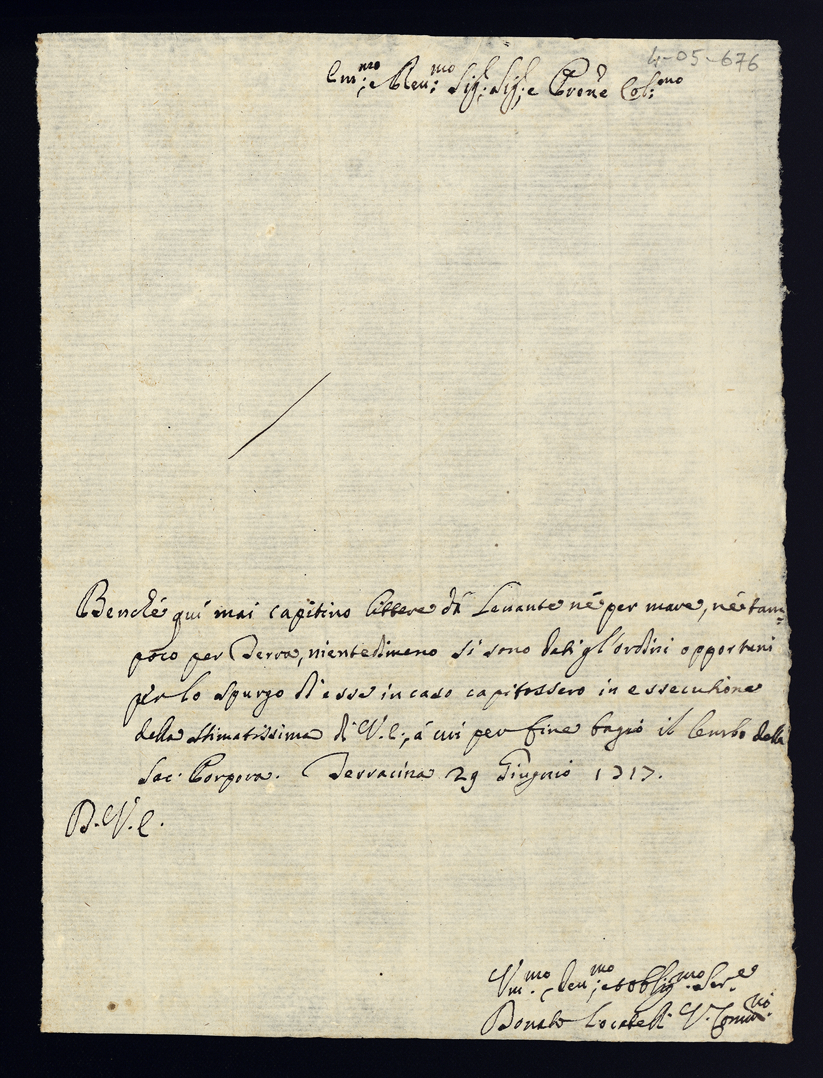 4-05-676
Em:mo e Reu:mo Sig: Sig: e Prone Col:mo
Benché quí mai capitino littere dà Leuante né per mare, né tam=
poco per Terra, nientedimeno si sono dati gl'ordini opportuni
per lo spurgo di esse in caso capitassero in essecutione
della stimatissima di V. E:, á cui per fine bagio il lembo della
Sac: Porpora. Terracina 29 Giugnio 1717.
D. V. E.
Vm:mo Deu:mo et obblig:mo Ser:e
Donato Locatelli V.